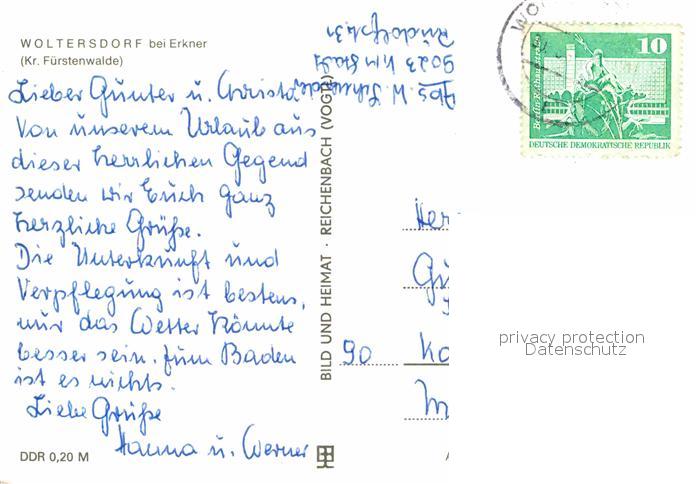 WOLTERSDORF bei Erkner
(Kr. Fürstenwalde)
Lieber Günter u. Christa
Von unserem Urlaub aus
dieser herrlichen Gegend
senden wir Euch ganz
herzliche Grüße.
Die Unterkunft und
Verpflegung ist bestens,
nur das Wetter könnte
besser sein. Zum Baden
ist es nichts.
Liebe Grüße
Hanna u. Werner
DDR 0,20 M
BILD UND HEIMAT · REICHENBACH (VOGTL)
Abs. W.
9023 K.M.Stadt
Her
Gü
90 Ka
WO
10
DEUTSCHE DEMOKRATISCHE REPUBLIK
privacy protection
Datenschutz